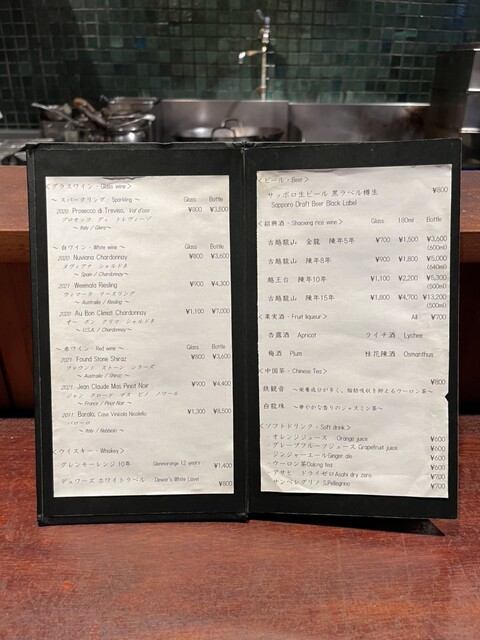 <グラスワイン・Glass wine>
～ スパークリング・Sparkling ～ Glass Bottle
2020 Prosecco di Treviso, Val d'oer ¥800 ¥3,800
プロセッコ ディ トレヴィーゾ
～ Italy / Glera～
～ 白ワイン・White wine～ Glass Bottle
2020 Nuviana Chardonnay ¥800 ¥3,600
ヌヴィアナ シャルドネ
～ Spain / Chardonnay～
2021 Weemala Riesling ¥900 ¥4,300
ウィマーラ リースリング
～ Australia / Riesling ～
2020 Au Bon Climat Chardonnay ¥1,100 ¥7,000
オー ボン クリマ シャルドネ
～ U.S.A. / Chardonnay～
～赤ワイン・Red wine～ Glass Bottle
2021 Found Stone Shiraz ¥800 ¥3,600
ファウンド ストーン シラーズ
～ Australia / Shiraz ～
2021 Jean Claude Mas Pinot Noir ¥900 ¥4,400
ジャン クロード マス ピノ ノワール
～ France / Pinot Noir ～
2011 Barolo, Casa Vinicola Nicolello ¥1,300 ¥8,500
バローロ
～ Italy / Nebbiolo ～
<ウイスキー・Whiskey>
グレンモーレンジ 10年 Glenmorangie 12 years ¥1,400
デュワーズ ホワイトラベル Dewar's White Lavel ¥800
<ビール・Beer>
サッポロ生ビール 黒ラベル樽生 ¥800
Sapporo Draft Beer Black Label
<紹興酒・Shaoxing rice wine> Glass 180ml Bottle
古越龍山 金龍 陳年5年 ¥700 ¥1,500 ¥3,600
(600ml)
古越龍山 陳年8年 ¥900 ¥1,800 ¥5,000
(640ml)
越王台 陳年10年 ¥1,100 ¥2,200 ¥5,300
(500ml)
古越龍山 陳年15年 ¥1,800 ¥4,700 ¥13,200
(500ml)
<果実酒・Fruit liqueur> All ¥700
杏露酒 Apricot ライチ酒 Lychee
梅酒 Plum 桂花陳酒 Osmanthus
<中国茶・Chinese Tea> ¥800
鉄観音 ～栄養成分が多く、脂肪吸収を抑えるウーロン茶～
白龍珠 ～華やかな香りのジャスミン茶～
<ソフトドリンク・Soft drink>
オレンジジュース Orange juice ¥600
グレープフルーツジュース Grapefruit juice ¥600
ジンジャーエール Ginger ale ¥600
ウーロン茶 Oolong tea ¥600
アサヒ ドライゼロ Asahi dry zero ¥700
サンペレグリノ S.Pellegrino ¥700